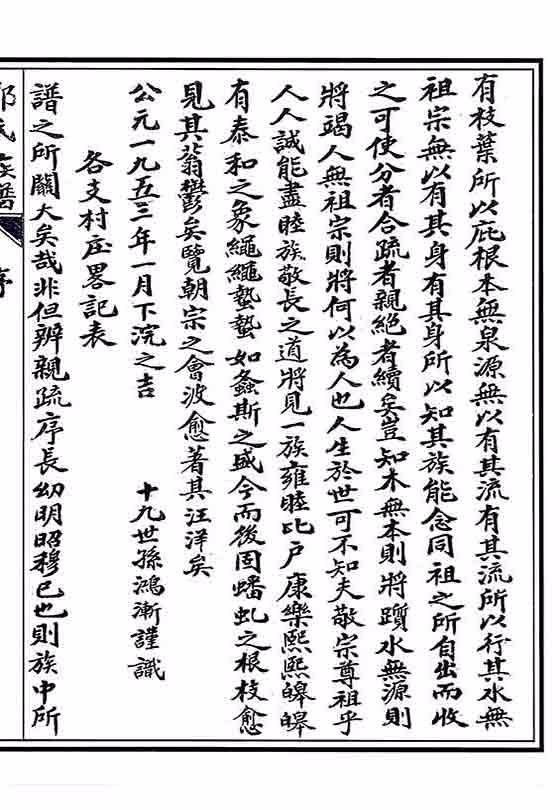 有枝葉所以庇根本無泉源無以有其流有其流所以行其水無
祖宗無以有其身有其身所以知其族能念同祖之所自出而收
之可使分者合疏者親絕者續矣豈知木無本則將躓水無源則
將竭人無祖宗則將何以為人也人生於世可不知夫敬宗尊祖乎
人人誠能盡睦族敬長之道將見一族雍睦比户康樂熙熙皞皞
有泰和之象繩繩蟄蟄如螽斯之盛今而後固蟠虬之根枝愈
見其蓊鬱矣覽朝宗之會波愈著其汪洋矣
公元一九五三年一月下浣之吉 十九世孫鴻漸謹識
各支村庄畧記表
譜之所關大矣哉非但辨親疏序長幼明昭穆已也則族中所
氏族譜 序